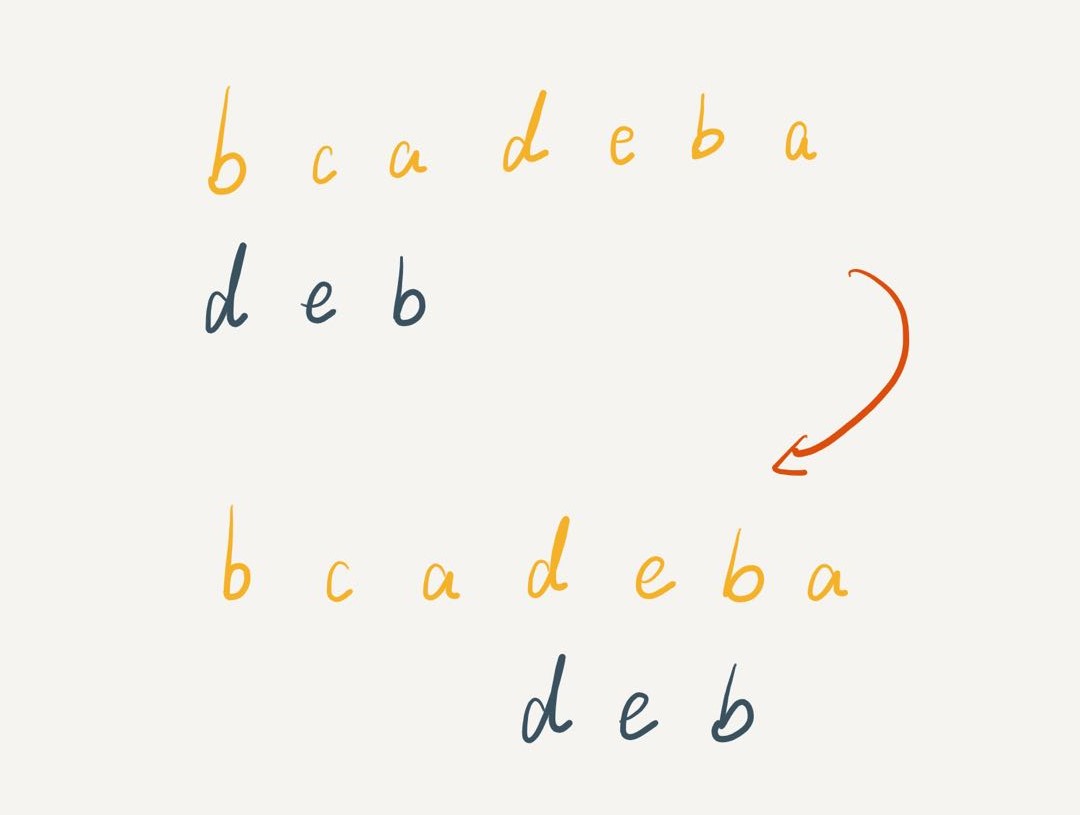 b c a d e b a
d e b
b c a d e b a
d e b